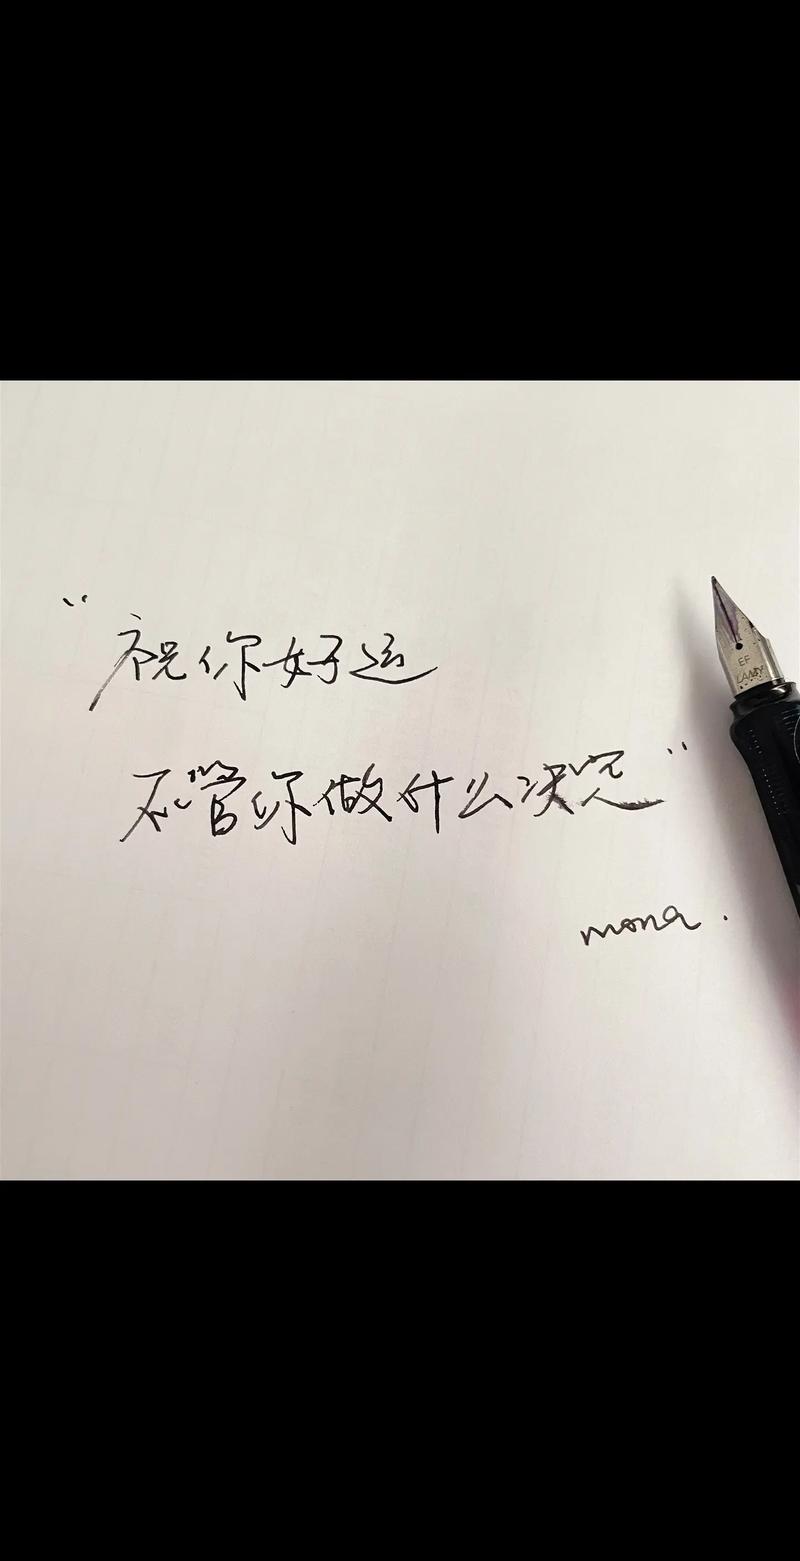 “祝你好运
不管你做什么决定”
mona.
EF
LAMY